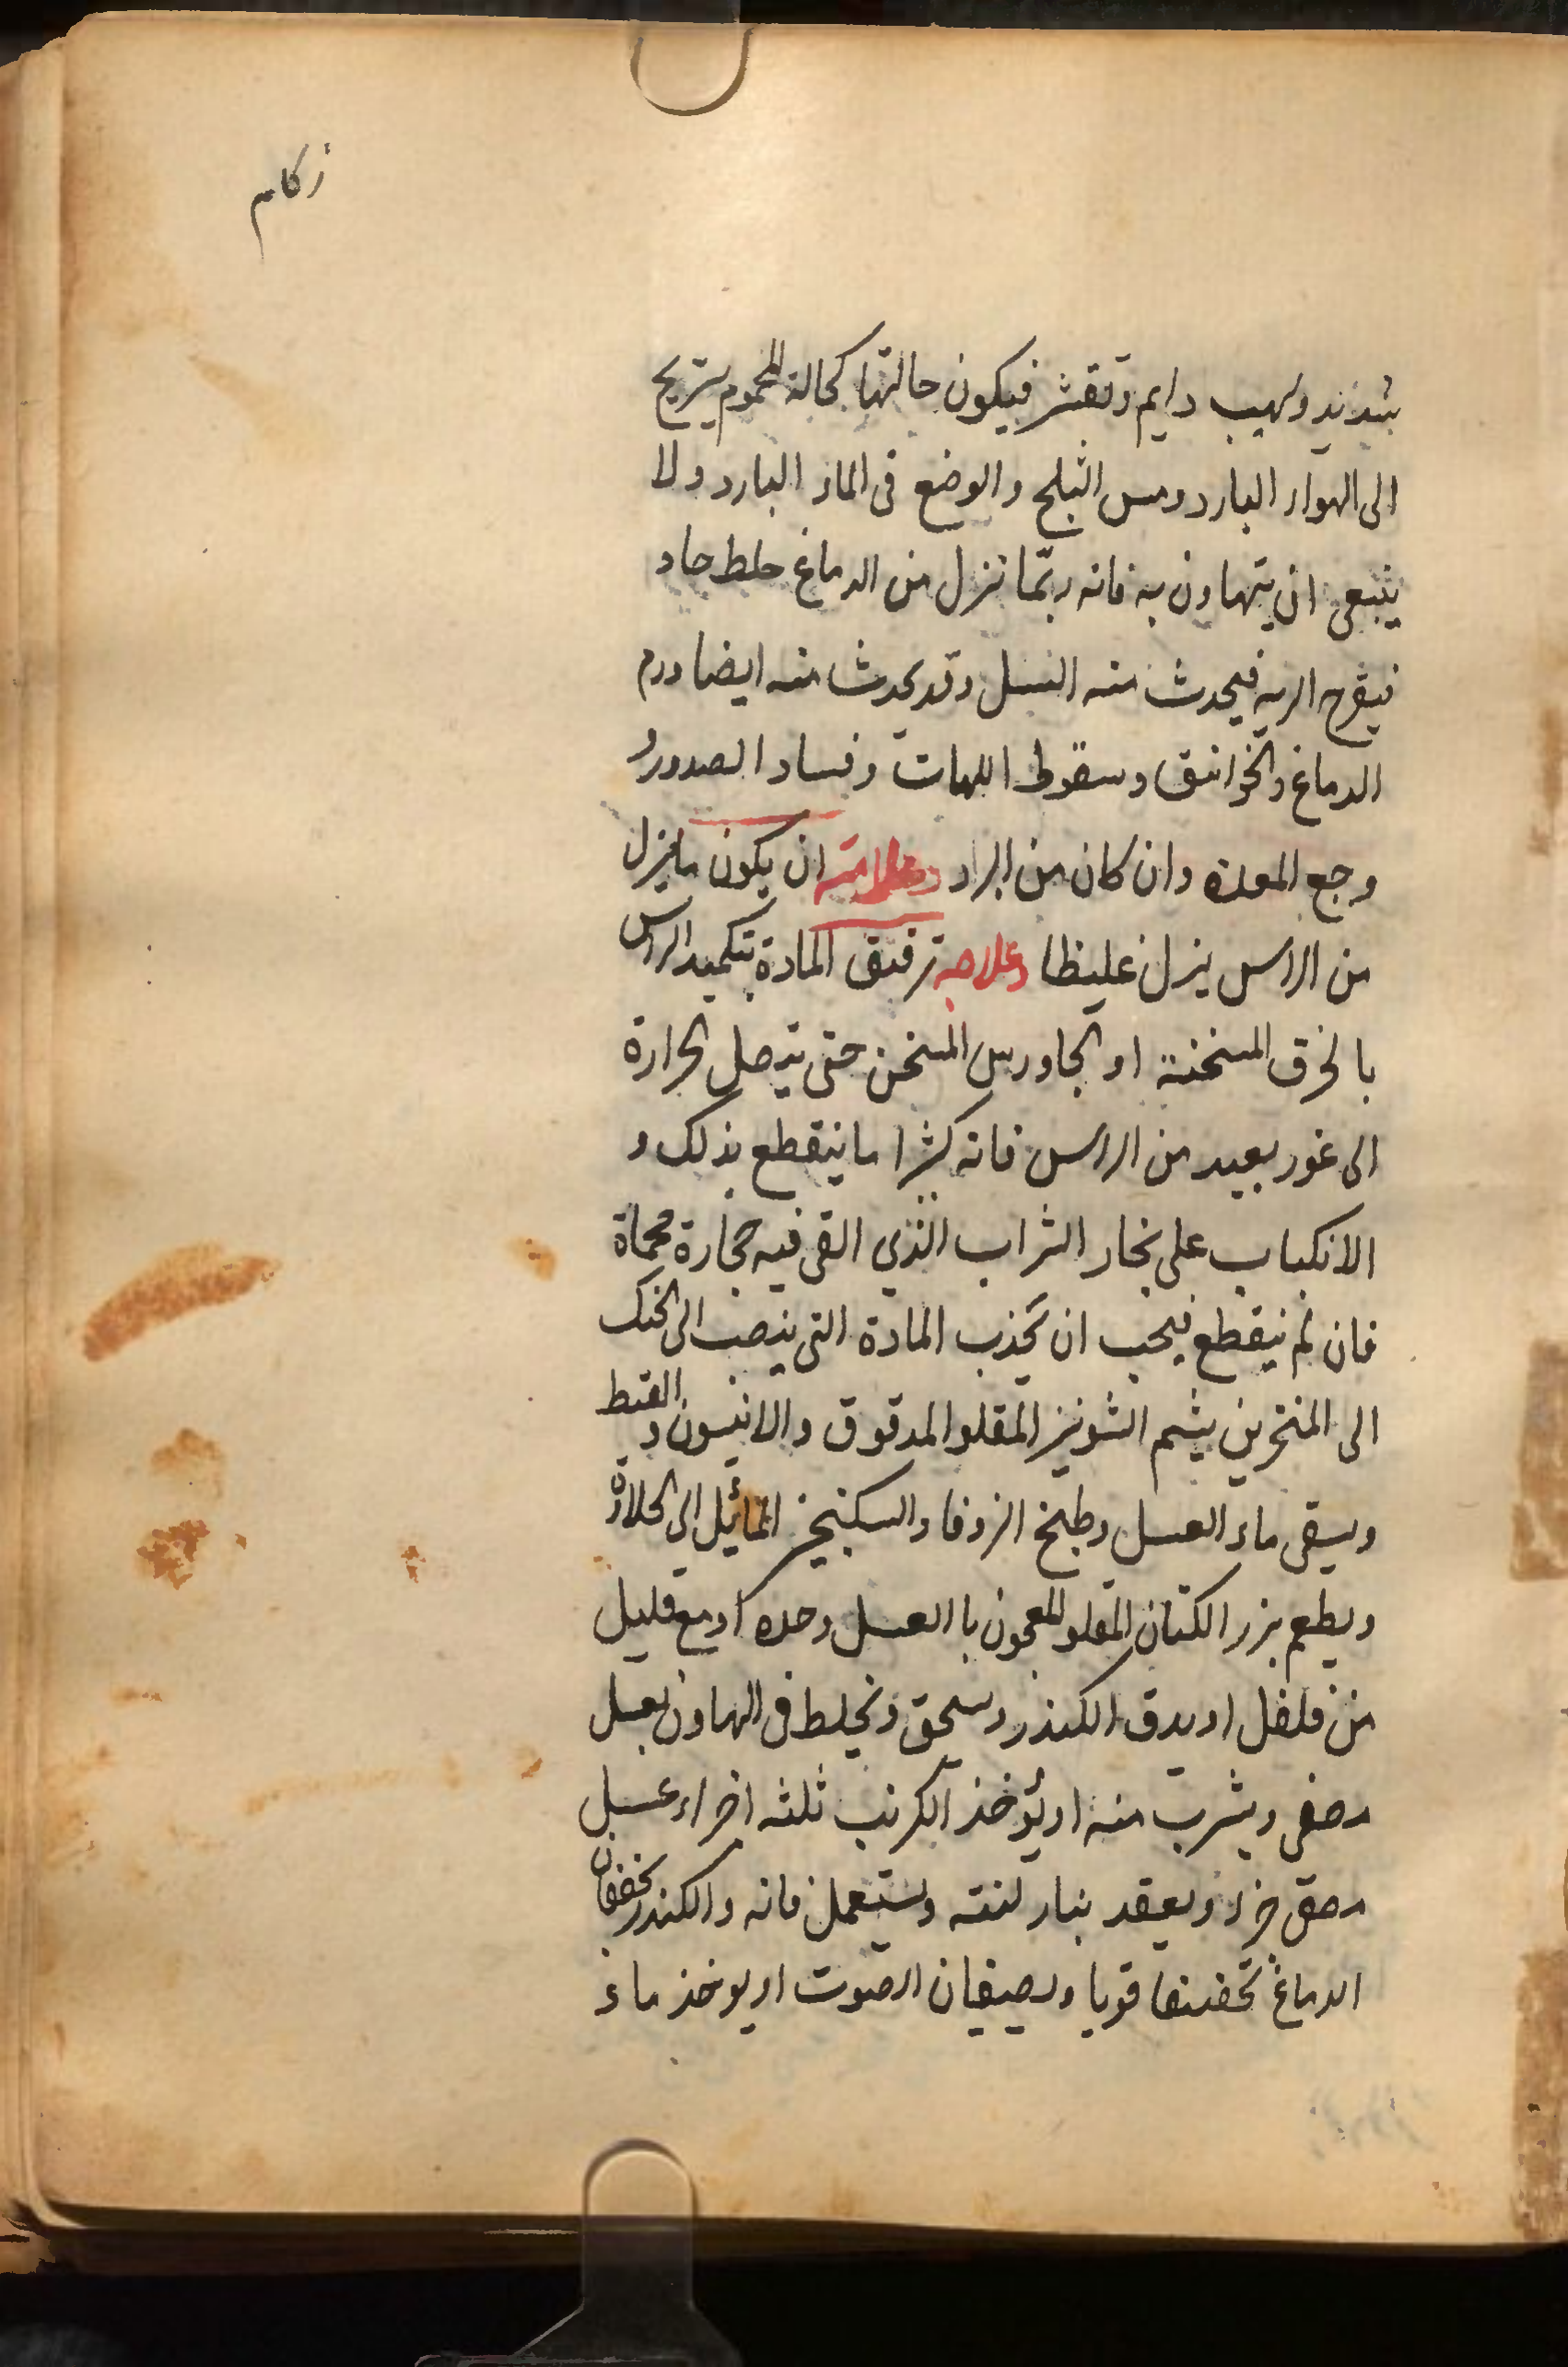 زكام
شديد ولهيب دايم وتقشر فيكون حالتها كحالة المحموم يتريح
الى الهواء البارد ومس الثلج والوضع فى الماء البارد ولا
ينبغى ان يتهاون به فانه ربّما نزل من الدماغ خلط حاد
فيقرح الريه فيحدث منه السل وقد يحدث منه ايضا ورم
الدماغ والخوانيق وسقوط اللهات وفساد الصدور و
وجع المعده وان كان من البراد وعلامته ان يكون ما ينزل
من الراس ينزل غليظا وعلاجه ترقيق المادة بتكميد الراس
بالخرق المسخنة او الجاورس المسخن حتى تتصل الحرارة
الى غور بعيد من الراس فانه كثيرا ما ينقطع بذلك و
الانكباب على بخار الشراب الذي القى فيه حجارة محماة
فان لم ينقطع فيجب ان تجذب المادة التى ينصب الى الحنك
الى المنخرين بشم الشونيز المقلو المدقوق والانيسون و القسط
ويسقى ماء العسل وطبخ الزوفا والسكنجبين المائيل الى الحلاوة
ويطعم بزر الكتان المقلو المعجون باالعسل وحده او مع قليل
من فلفل او يدق الكندر ويسحق ويخلط فى الهاون بعسل
مصفى ويشرب منه او يؤخذ الكرنب ثلثه اجزاء عسل
مصفى جزء ويعقد بنار لينه ويستعمل فانه والكندر يجففان
الدماغ تجفيفا قويا ويصفيان الصوت او يوخذ ماء